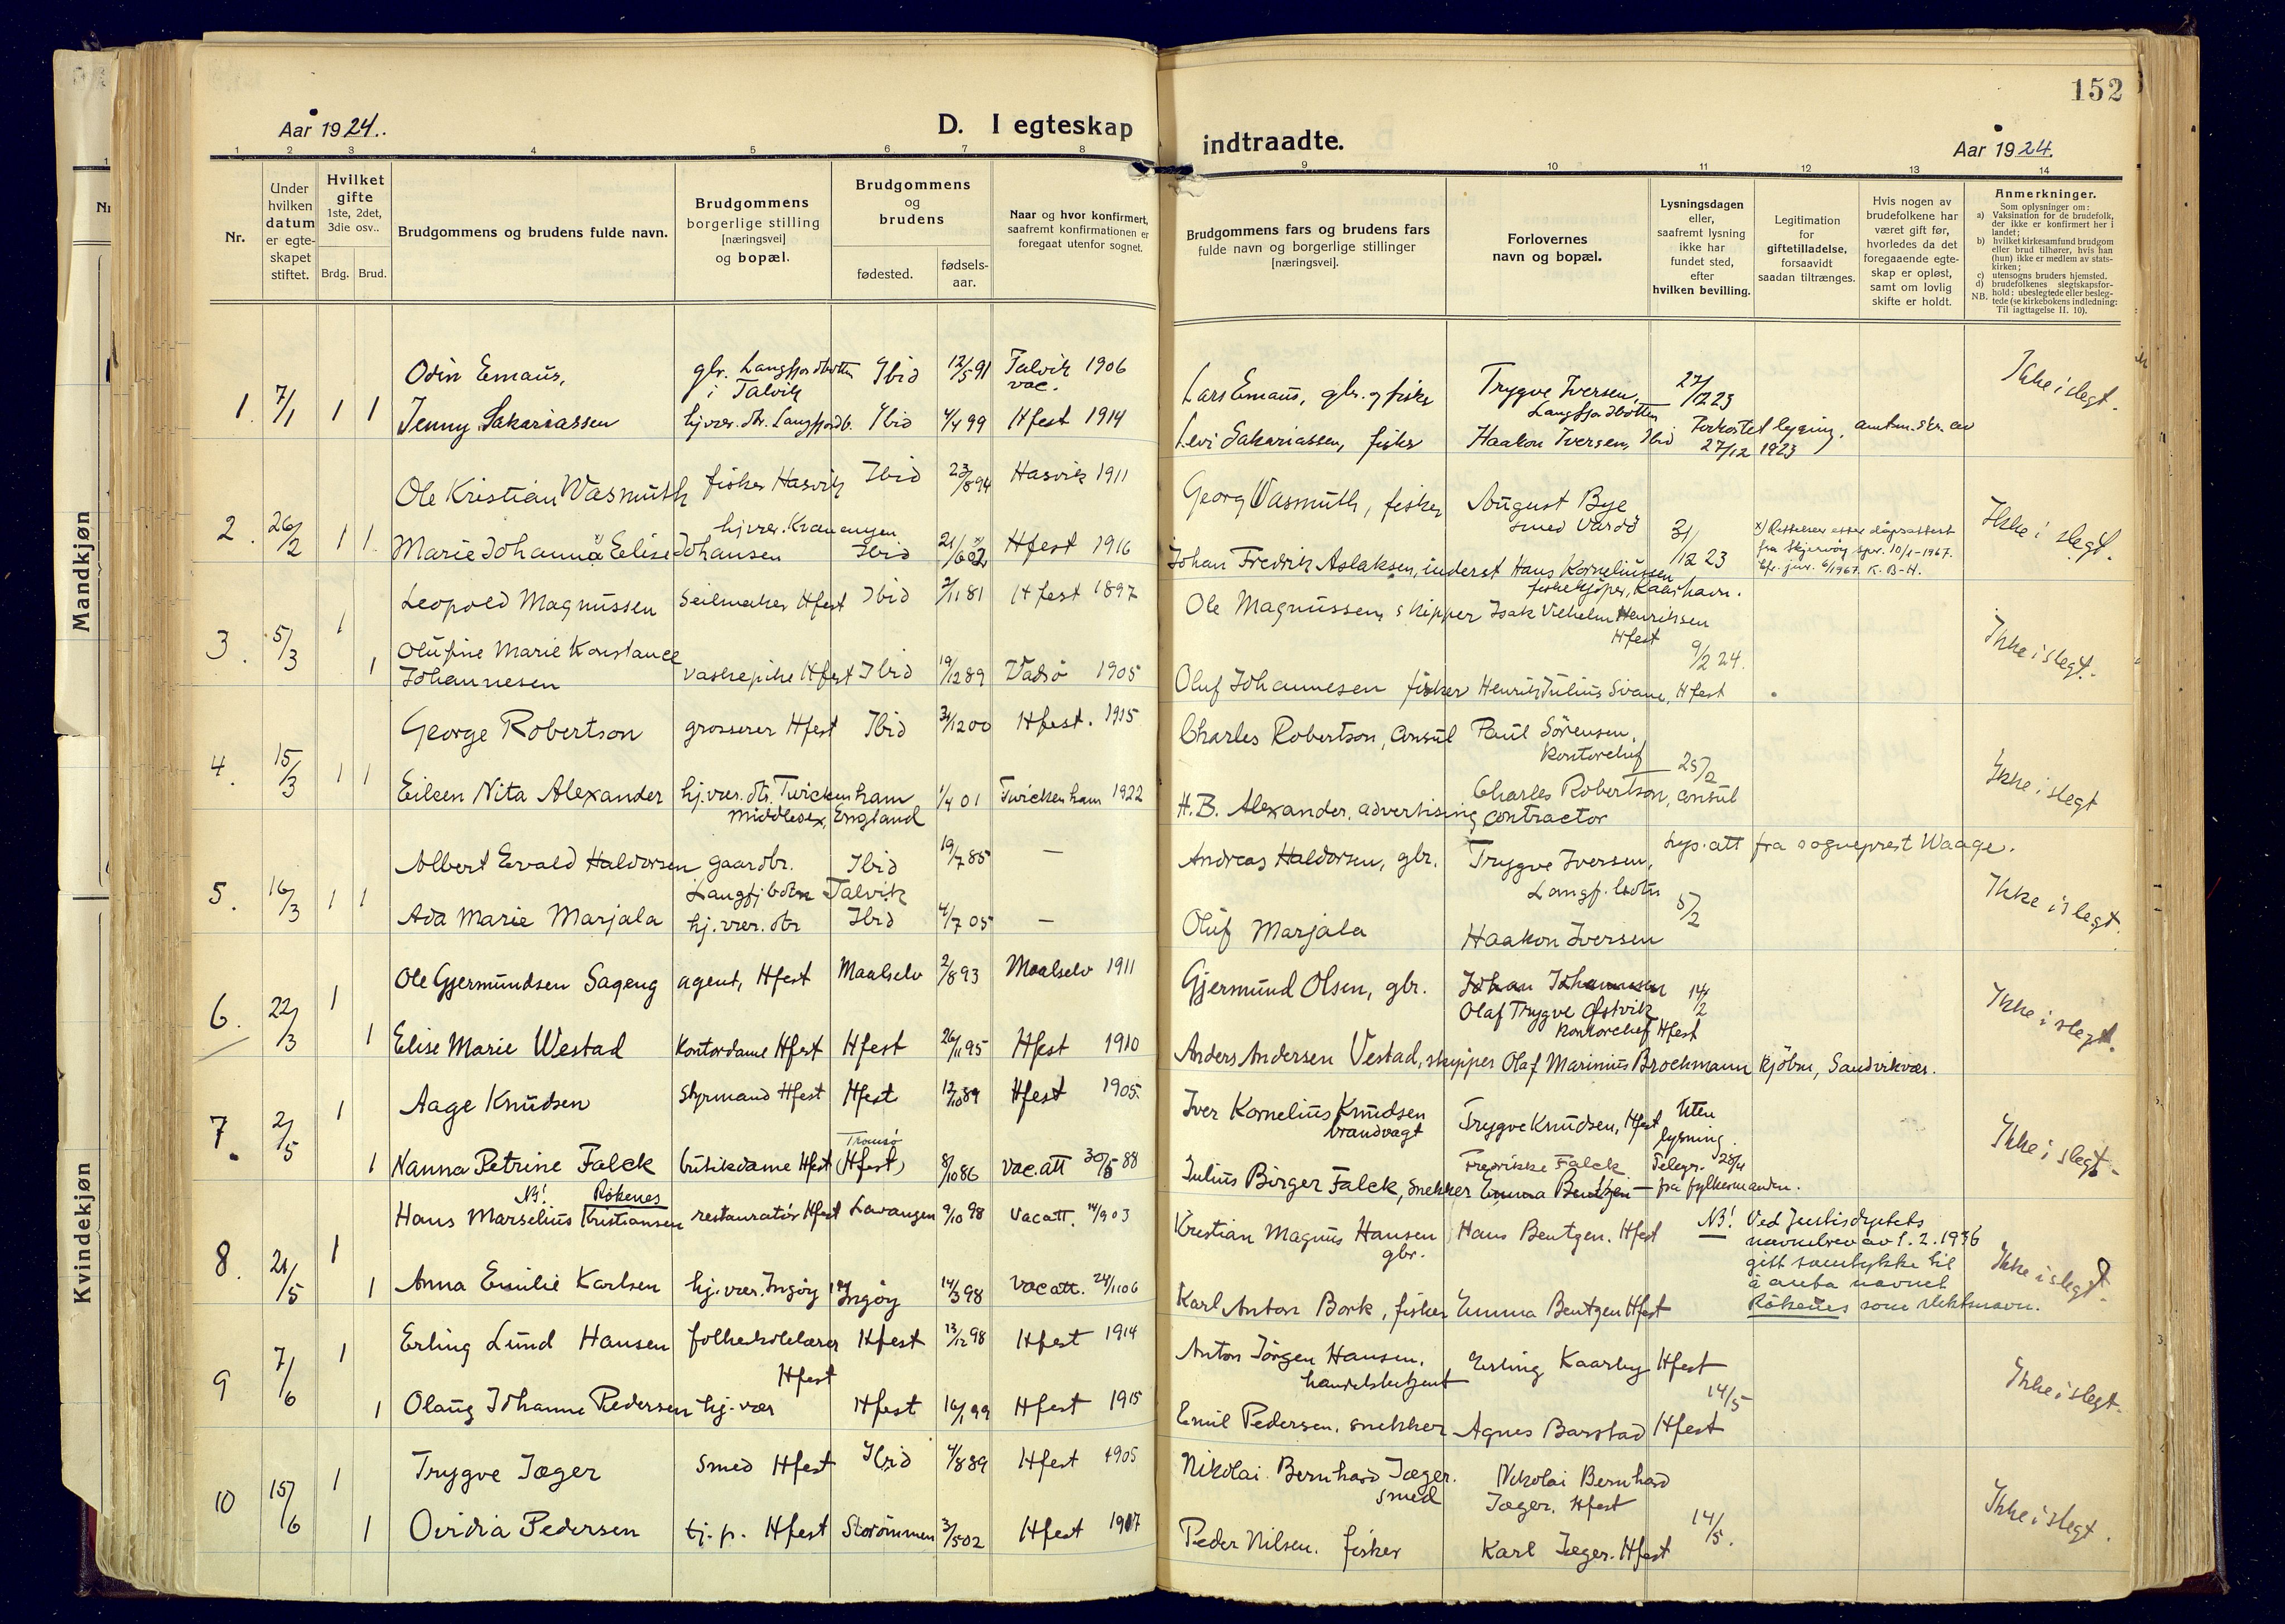 152
Aar 1924.
D. I egteskap
indtraadte.
Aar 1924.
1 2 3 4 5 6 7 8 9 10 11 12 13 14
Nr.
Under hvilken datum er egteskapet stiftet.
Hvilket gifte 1ste, 2det, 3die osv..
Brdg. Brud.
Brudgommens og brudens fulde navn.
Brudgommens borgerlige stilling [næringsvei] og bopæl.
Brudgommens og brudens
fødested.
fødselsaar.
Naar og hvor konfirmert, saafremt konfirmationen er foregaat utenfor sognet.
Brudgommens fars og brudens fars fulde navn og borgerlige stillinger [næringsvei].
Forlovernes navn og bopæl.
Lysningsdagen eller, saafremt lysning ikke har fundet sted, efter hvilken bevilling.
Legitimation for giftetilladelse, forsaavidt saadan tiltrænges.
Hvis nogen av brudefolkene har været gift før, hvorledes da det foregaaende egteskap er opløst, samt om lovlig skifte er holdt.
Anmerkninger.
Som oplysninger om:
a) Vaksination for de brudefolk, der ikke er konfirmert her i landet;
b) hvilket kirkesamfund brudgom eller brud tilhører, hvis han (hun) ikke er medlem av statskirken;
c) utensogns bruders hjemsted.
d) brudefolkenes slegtskapsforhold: ubeslegtede eller beslegtede (se kirkebokens indledning: Til iagttagelse II. 10).
NB.
Mandkjøn
Kvindekjøn
1. 7/1 1 1
Odin Emaus, gbr. Langfjordbotten i Talvik Ibid 12/5 91 Talvik 1906 vac.
Lars Emaus, gbr. og fisker Trygve Iversen, Langfjordbotten 27/12 23 Ikke i slegt.
Jenny Sakariassen hj.vær. dtr. Langfjordb. Ibid 4/4 99 Hfest 1914
Levi Sakariassen, fisker Haakon Iversen, Ibid Forkortet lysning, amtm. skr. av 27/12 1923
2. 26/2 1 1.
Ole Kristian Wasmuth fisker Hasvik Ibid 23/8 94 Hasvik 1911
Georg Wasmuth, fisker August Bye smed Vardö 31/12 23 Ikke i slegt.
Marie Johanna Elise Johansen hj.vær. Kvænangen Ibid 21/6 02 Hfest 1916
Johan Fredrik Aslaksen, inderst Hans Korneliussen fiskekjöper, Kaarhavn.
x) Rettelser etter dåpsattest fra Skjervöy spr. 10/1-1967. Cfr. jnr. 6/1967. K. B-H.
3. 5/3 1 1
Leopold Magnussen Seilmaker Hfest Ibid 2/11 81 Hfest 1897
Ole Magnussen, skipper Isak Vilhelm Henriksen Hfest 9/2 24. Ikke i slegt.
Olufine Marie Konstance Johannesen vaskepike Hfest Ibid 19/12 89 Vadsö 1905
Oluf Johannesen fisker Henrik Julius Sivane, Hfest
4. 15/3 1 1
George Robertson grosserer Hfest Ibid 31/12 00 Hfest. 1915
Charles Robertson, Consul Paul Sörensen, Kontorchef 25/2 Ikke i slegt
Eileen Nita Alexander hj.vær. dtr. Twickenham Middlesex, England 1/4 01 Twickenham 1922
H.B. Alexander, advertising contractor Charles Robertson, consul
5. 16/3 1 1
Albert Evald Haldorsen gaardbr. Langfj.botn Talvik Ibid 19/7 85 —
Andreas Haldorsen, gbr. Trygve Iversen, Langfj. botn 5/2 Lys.att fra sogneprest Waage. Ikke i slegt.
Ada Marie Marjala hj.vær. dtr Ibid 4/7 05 —
Oluf Marjala Haakon Iversen
6. 22/3 1 1
Ole Gjermundsen Sageng agent, Hfest Maalselv 2/8 93 Maalselv 1911
Gjermund Olsen, gbr. Johan Johannesen Olaf Trygve Østvik Kontorchef Hfest 14/2 Ikke i slegt.
Elise Marie Westad Kontordame Hfest Hfest 26/11 95 Hfest 1910
Anders Andersen Vestad, skipper Olaf Marinius Brochmann kjöbm, Sandvikvær.
7. 2/5 1 1
Aage Knudsen Styrmand Hfest Hfest 12/10 89 Hfest 1905.
Iver Kornelius Knudsen brandvagt Trygve Knudsen, Hfest Uten lysning. Ikke i slegt.
Nanna Petrine Falck butikdame Hfest Tromsö (Hfest) 8/10 86 vac.att 30/5 88
Julius Birger Falck, snekker Fredrikke Falck Emma Bentzen Telegr. 28/4 — fra fylkesmanden.
8. 21/5 1 1
NB! Rökenes
Hans Marselius Kristiansen restauratör Hfest Lavangen 9/10 98 Vacatt. 14/9 03
Kristian Magnus Hansen gbr. Hans Bentzen. Hfest
NB! Ved Justisdeptets navnebrev av 1.2.1936 gitt samtykke til å anta navnet Rökenes som slektsnavn. Ikke i slegt.
Anna Emilie Karlsen hj.vær. Ingöy Ingöy 14/3 98 Vacatt. 24/11 06
Karl Anton Bork, fisker Emma Bentzen Hfest
9 7/6 1 1
Erling Lund Hansen folkeskolelærer Hfest Hfest 13/12 98 Hfest 1914
Anton Jörgen Hansen, handelsbetjent Erling Kaarby Hfest 14/5 Ikke i slegt.
Olaug Johanne Pedersen hj. vær Hfest 16/1 99 Hfest 1915
Emil Pedersen, snekker Agnes Barstad Hfest
10 15/6 1 1
Trygve Jæger Smed Hfest Ibid 4/8 89 Hfest 1905
Nikolai Bernhard Jæger. smed Nikolai Bernhard Jæger. Hfest 14/5. Ikke i slegt.
Ovidia Pedersen tj. p. Hfest Storömmen 3/5 02 Hfest 1917
Peder Nilsen. fisker Karl Jæger. Hfest